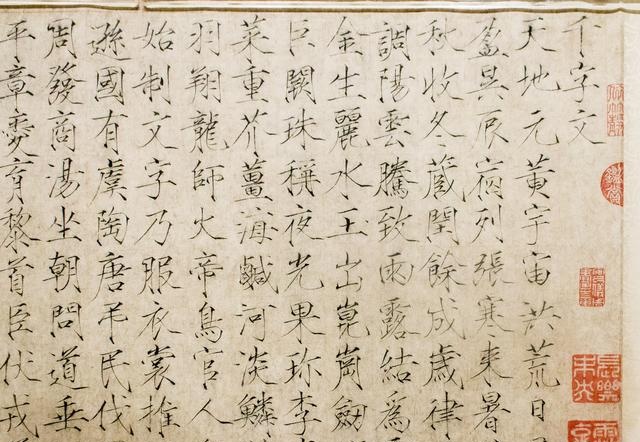 千字文
天地元黃宇宙洪荒日
盈昃辰宿列張寒來暑
秋收冬藏閏餘成歲律
調陽雲騰致雨露結爲
金生麗水玉出崑崗劒
巨闕珠稱夜光果珍李
菜重芥薑海鹹河淡鱗
羽翔龍師火帝鳥官人
始制文字乃服衣裳推
遜國有虞陶唐弔民伐
周發商湯坐朝問道垂
平章愛育黎首臣伏戎
長樂
未央